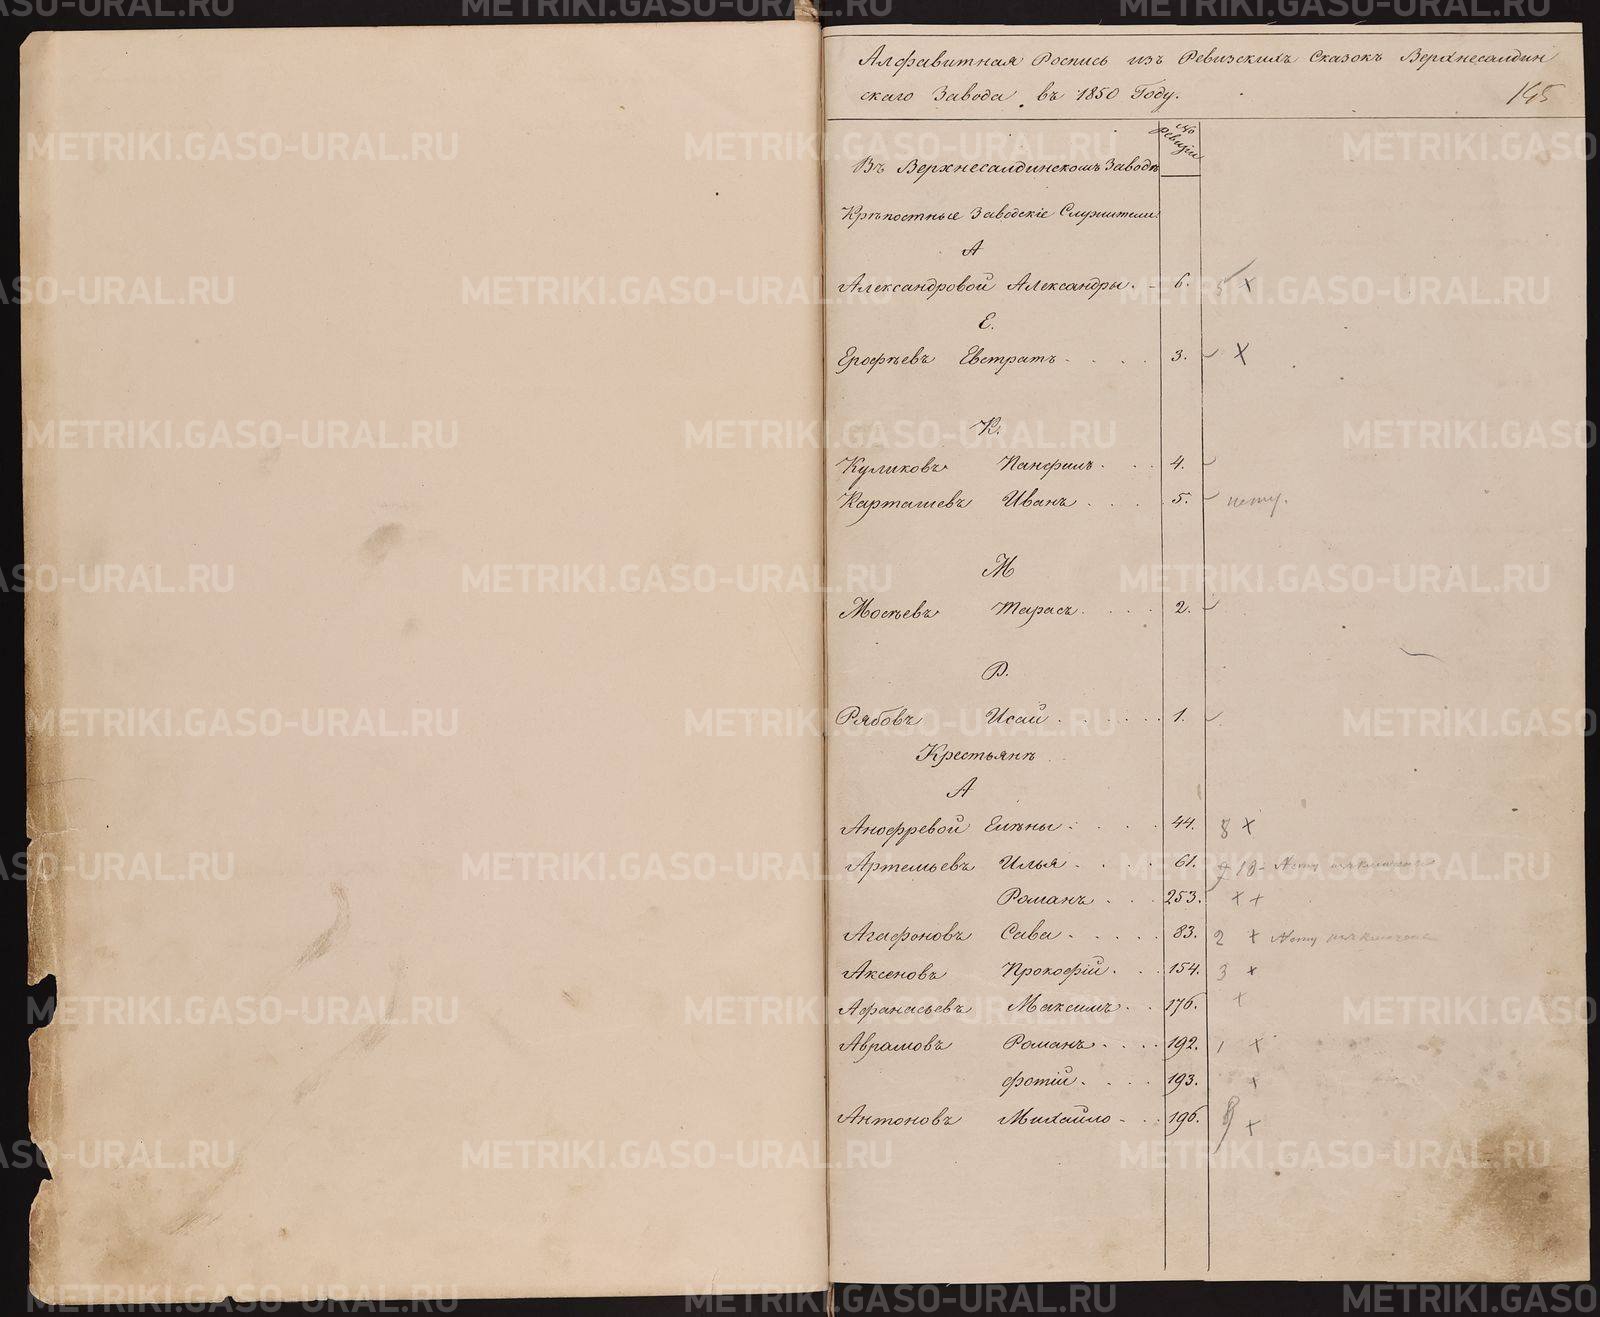 Алфавитная Роспись изъ Ревизскихъ Сказокъ Верхнесалдин
скаго Завода въ 1850 Году.
145
№ Ревизіи
Въ Верхнесалдинскомъ Заводѣ
Крѣпостные Заводскіе Служители
А
Александровой Александры. 6. 5 ×
Е.
Ерофѣевъ Евстратъ 3. ×
К.
Куликовъ Панфилъ 4.
Карташевъ Иванъ 5. нету.
М
Мосѣевъ Тарасъ 2.
Р.
Рябовъ Исай 1.
Крестьянъ
А
Анофревой Елѣны 44. 8 ×
Артемьевъ Илья 61. 10 Нету
Романъ 253. × +
Агафоновъ Сава 83. 2 × Нету
Аксеновъ Прокофій 154. 3 ×
Афанасьевъ Максимъ 176. ×
Аврамовъ Романъ 192. 1 ×
Фотій 193. ×
Антоновъ Михайло 196. ×
METRIKI.GASO-URAL.RU